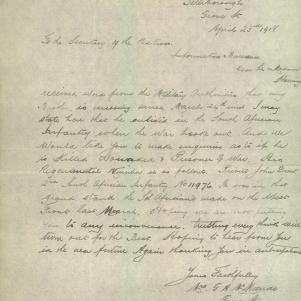 Grove St
April 25th 1918
To the Secretary of the
Information Bureau
received word from the Military Authorities that my
Brother is missing since March 24th and I may
state here that he enlisted in the South African
Infantry when the War broke out. And we
would like you to make enquiries as to if he
is Killed Wounded or Prisoner of War. His
Regimental Number is as follows. Private John
South African Infantry No 11976. He was in that
Grand Stand the Sth Africans made on the West
Front last March. Hoping we are not putting
you to any inconvenience, trusting every think will
turn out for the Best. Hoping to hear from you
in the near future Again thanking you in anticipation
Yours Faithfully
Mrs